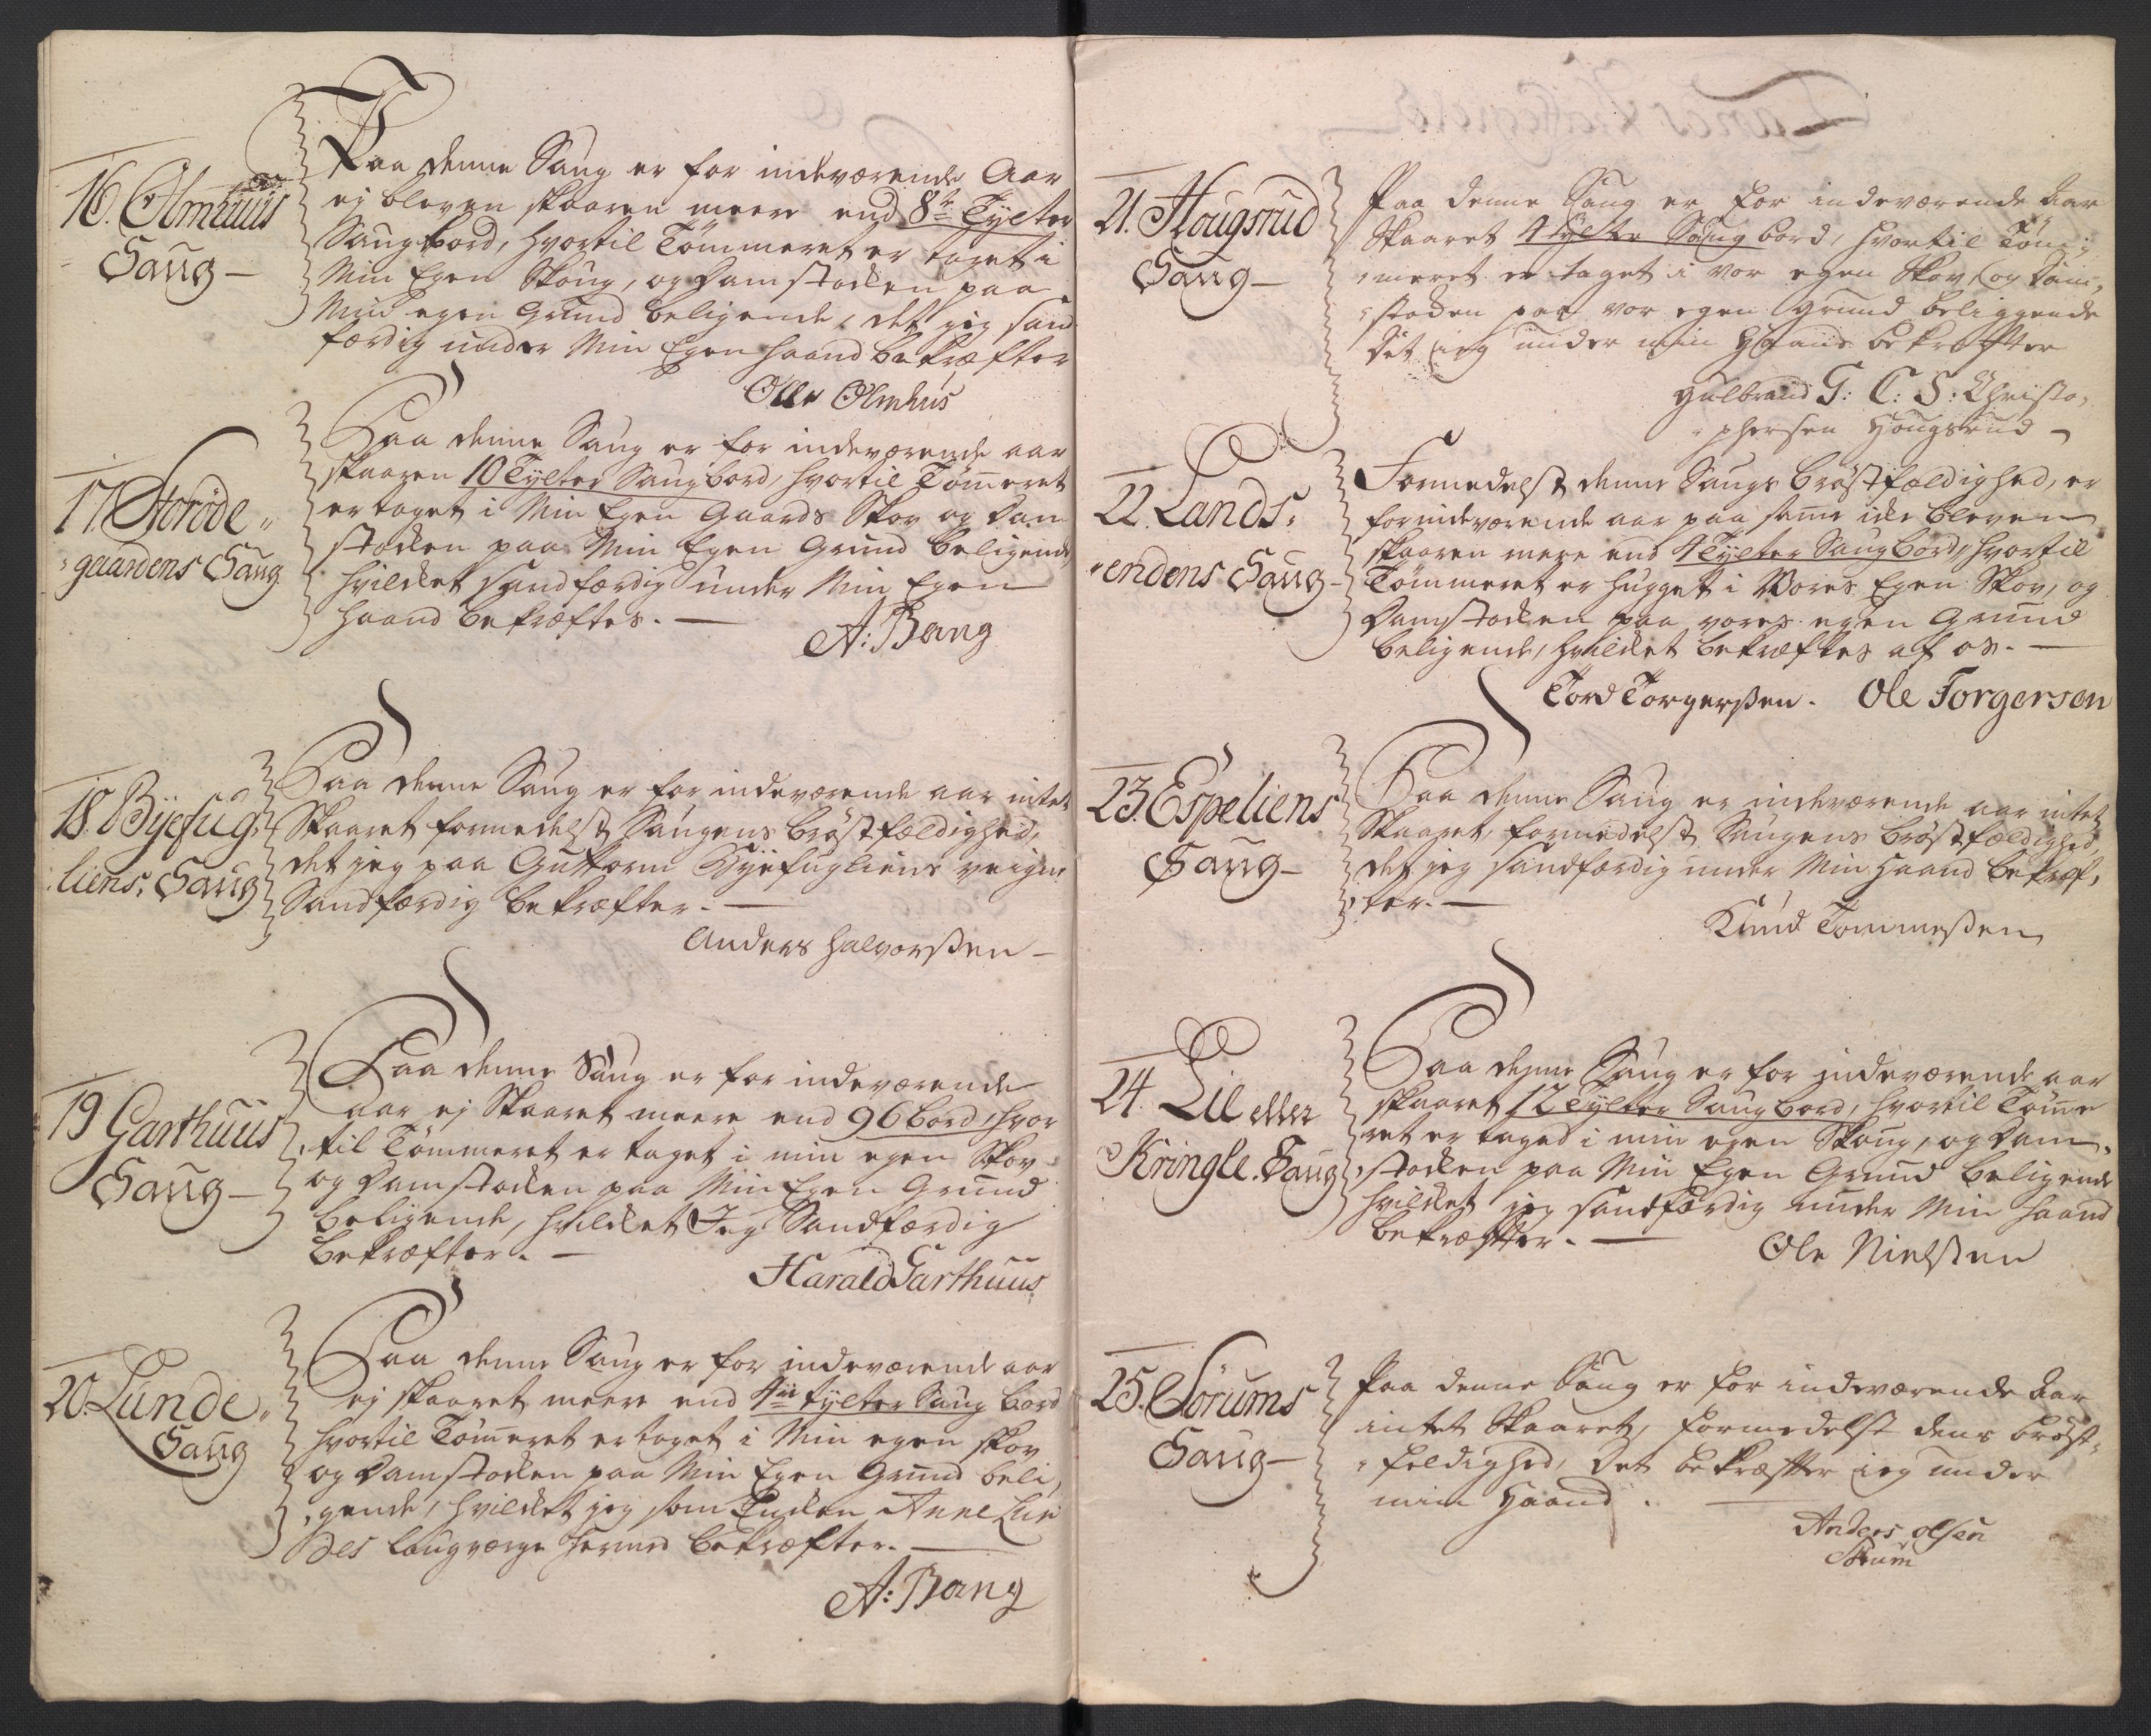 16. Olmhuus
Saug —
Paa denne Saug er for indeværende Aar
ej bleven skaaren meere end 8te Tylter
Saugbord, hvortil Tømmeret er taget i
Min Egen Skoug, og Damstocken paa
Min egen Grund beligende, det jeg sand
færdig under Min Egen haand bekræfter
Olle Olmhus
17. Storøde„
„gaardens Saug
Paa denne Saug er for indeværende aar
skaaren 10 Tylter Saugbord, hvortil Tømeret
er taget i Min Egen Gaards Skov og Dam
stocken paa Min Egen Grund beligende
hvilcket sandfærdig under Min Egen
haand bekræftes. —
A: Bang
18. Byefug„
liens, Saug
Paa denne Saug er for indeværende aar intet
Skaaret formedelst Saugens brøstfældighed,
det jeg paa Guttorm Byefugliens veigne
Sandfærdig bekræfter. —
Anders Halvorßen —
19 Garthuus
Saug —
Paa denne Saug er for indeværende
aar ej Skaaret meere end 96 bord, hvor
„til Tømmeret er taget i min egen Skov
og Damstocken paa Min Egen Grund
beligende, hvilcket Jeg Sandfærdig
bekræfter. —
Harald Garthuus
20. Lunde„
Saug
Paa denne Saug er for indeværende aar
ej skaaret meere end 4re tylter Saug bord
hvortil Tømeret er taget i Min egen skov
og Damstocken paa Min Egen Grund beli„
„gende, hvilcket jeg som Encken Anne Lun
des laugværge herved bekræfter. —
A: Bang
21. Hougsrud
Saug —
Paa denne Saug er for indeværende Aar
Skaaret 4 tylter Saug bord, hvortil Tøm„
„meret er taget i vor egen Skov, og Dam„
„stocken paa vor egen Grund beliggende
Det ieg under min Haand bekræffter
Gulbrand G: C: S: Christo„
„phersen Hougsrud —
22. Lands„
„endens Saug —
Formedelst denne Saugs brøstfældighed, er
for indeværende aar paa same icke bleven
skaaren mere end 4 Tylter Saugbord, hvortil
Tømmeret er hugget i Vores Egen Skov, og
Damstocken paa vores egen Grund
beligende, hvilcket bekræftes af os. —
Tord Torgerßen. Ole Torgersen
23. Espeliens
Saug —
Paa denne Saug er indeværende aar intet
Skaaret, formedelst Saugens brøstfældighed,
det jeg sandfærdig under Min Haand bekræf„
„ter. —
Knud Tommeßen
24. Lil eller
Kringle. Saug
Paa denne Saug er for indeværende aar
skaaret 12 Tylter Saugbord, hvortil Tømme
ret er taged i min egen Skoug, og Dam„
„stocken paa Min Egen Grund beligende
hvilcket jeg sandfærdig under Min haand
bekræffter. —
Ole Nielsen
25. Sørums
Saug —
Paa denne Saug er for indeværende Aar
intet Skaaret, formedelst dens brøst„
„feldighed, det bekræffter ieg under
min Haand. —
Anders olsen
Sørum